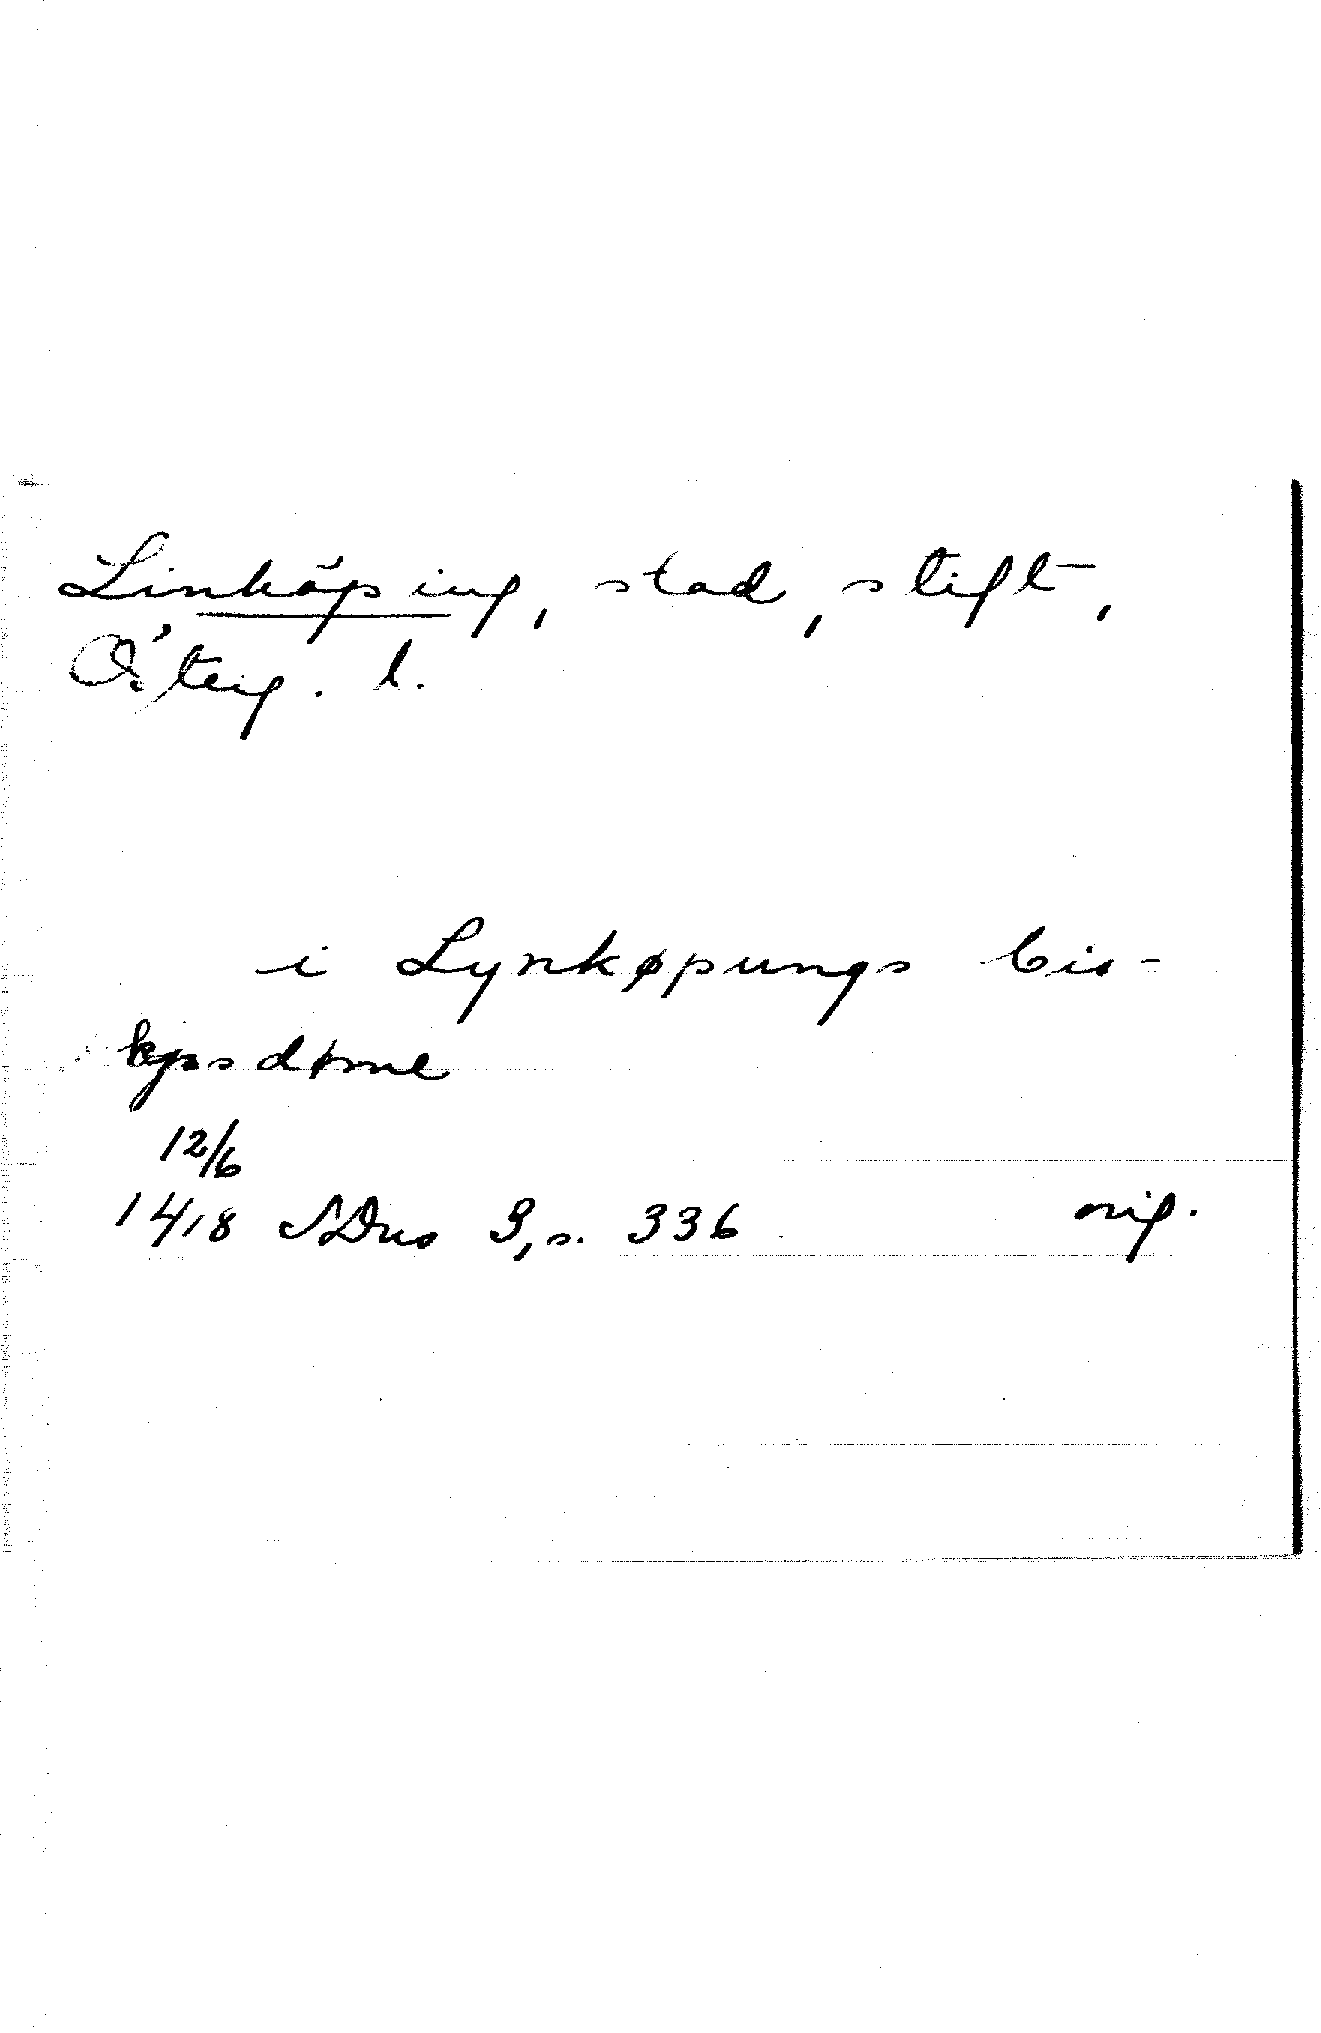 Linköping, stad, stift,
Österg. l.
i Lynkøpungs bis-
kpsdøme
12/6
1418 SDns 3, s. 336 orig.